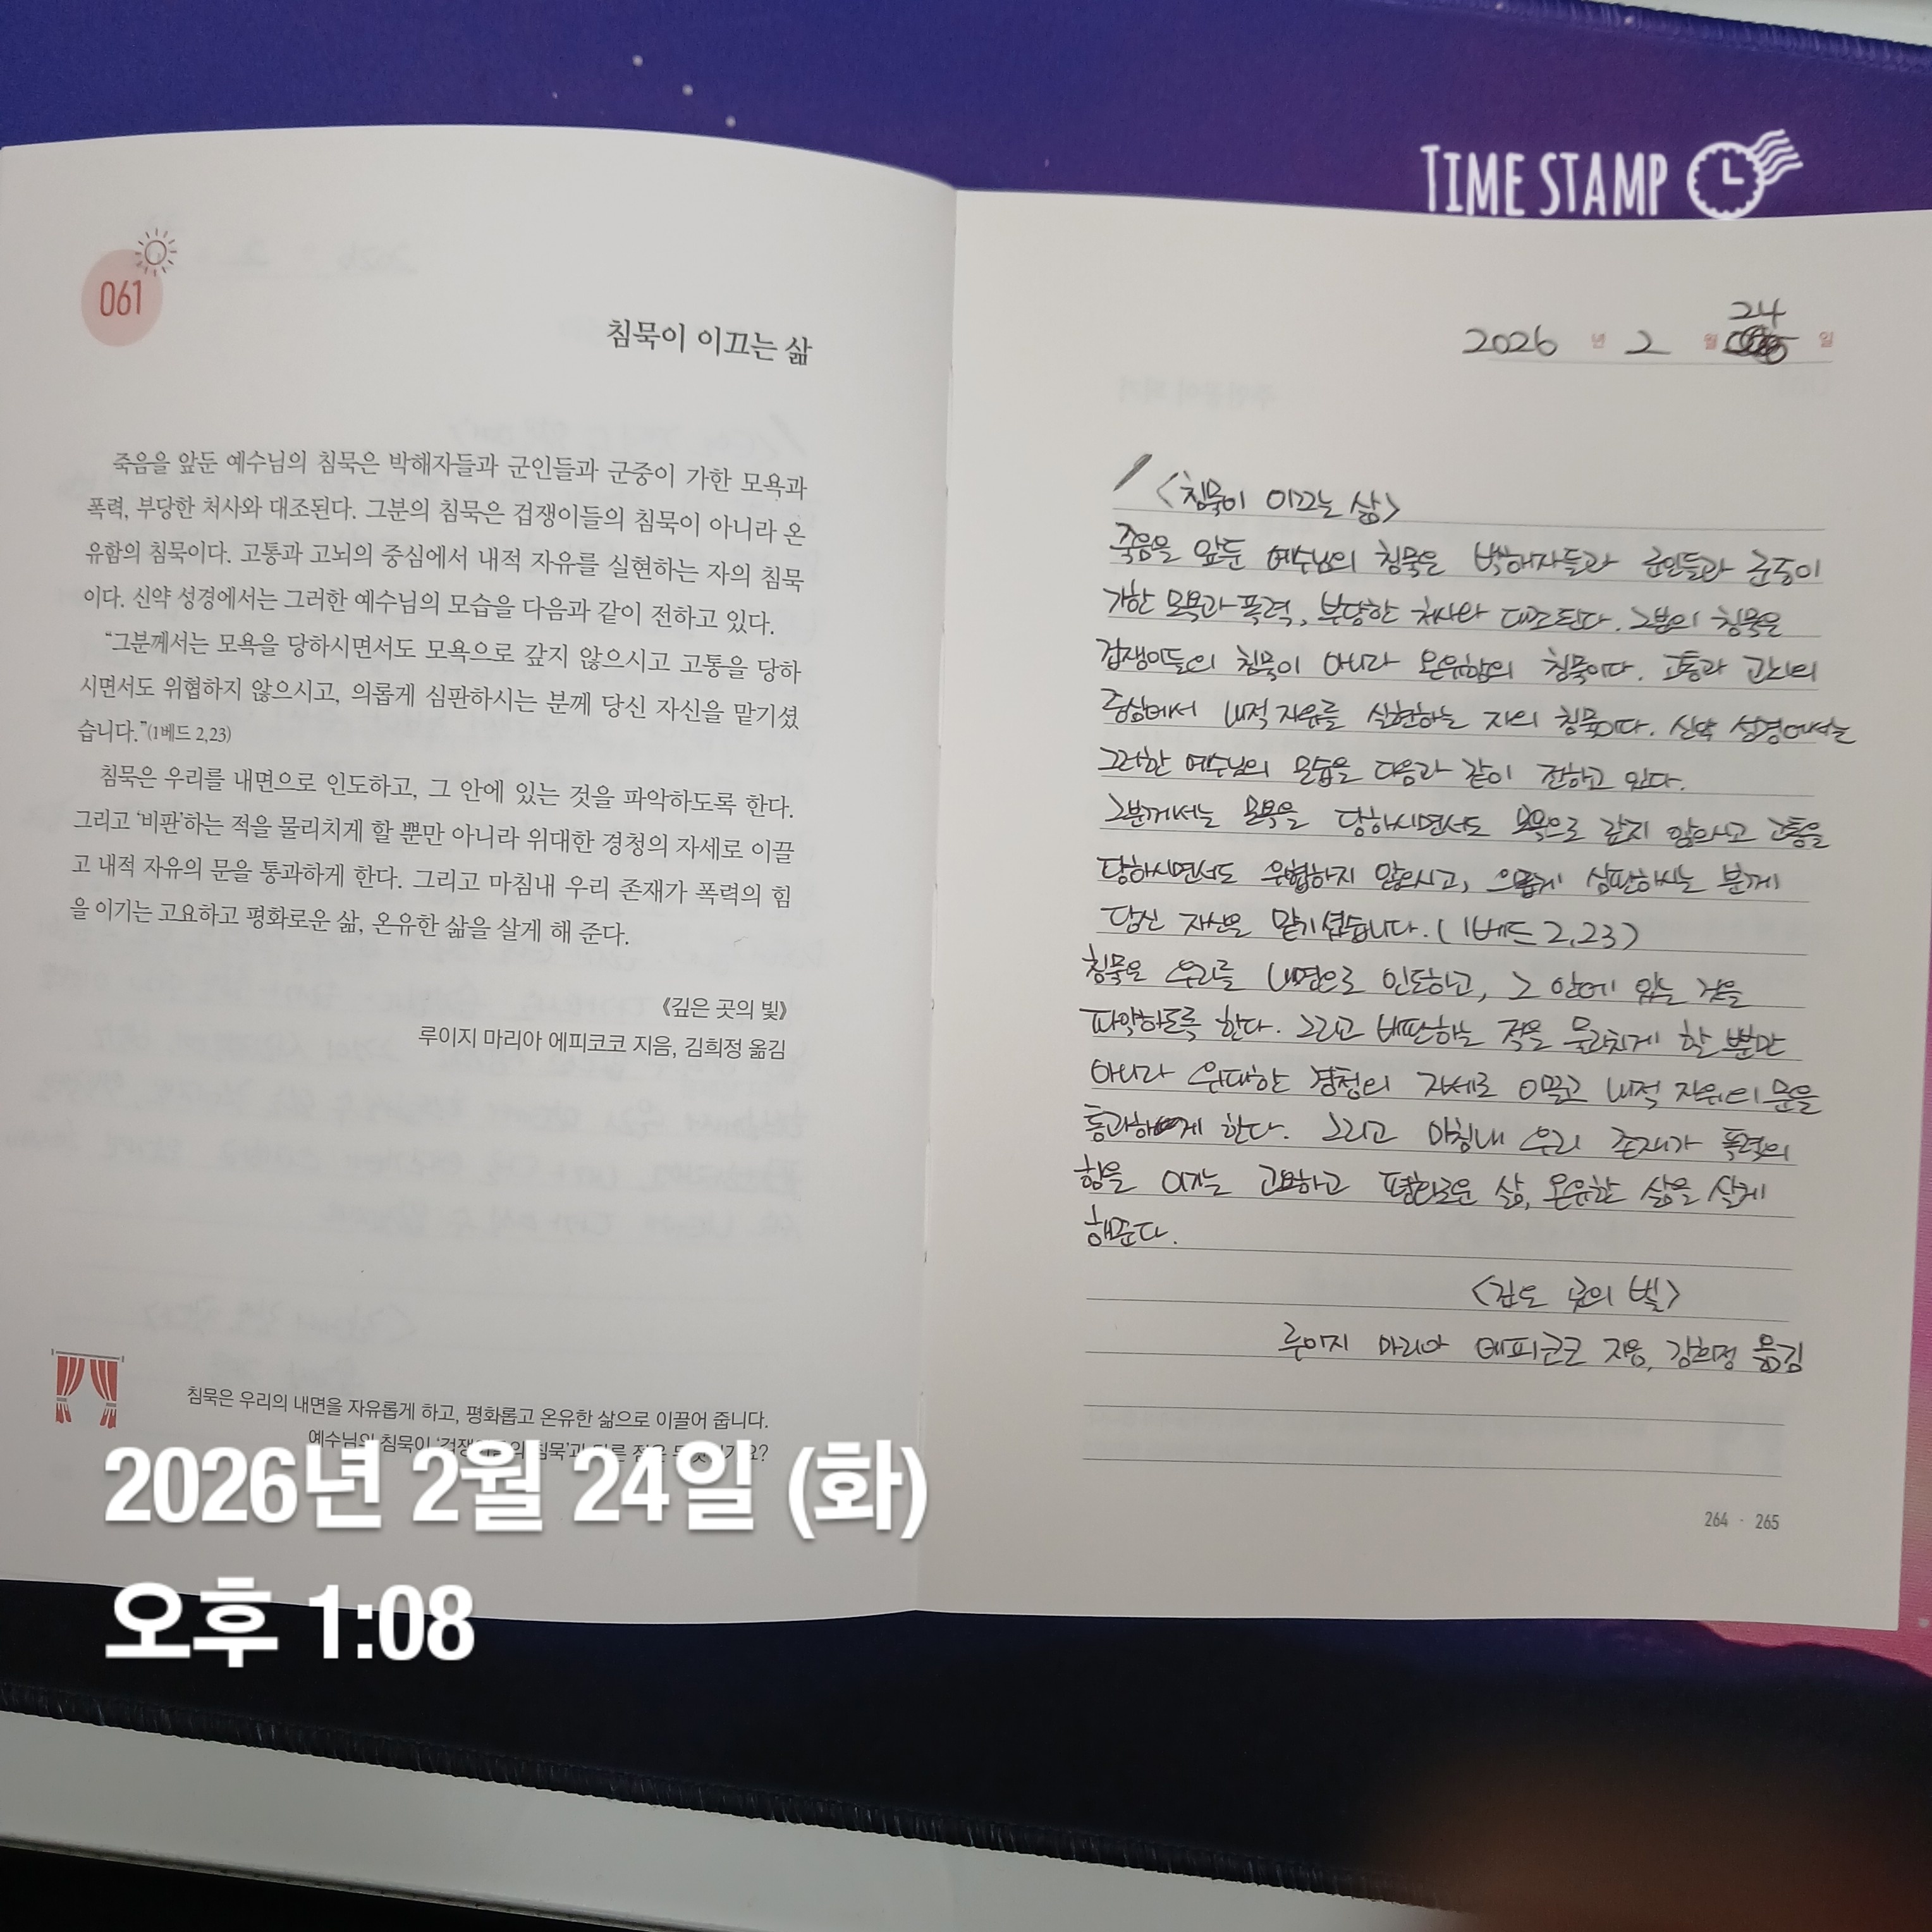 TIME STAMP
061
침묵이 이끄는 삶
죽음을 앞둔 예수님의 침묵은 박해자들과 군인들과 군중이 가한 모욕과
폭력, 부당한 처사와 대조된다. 그분의 침묵은 겁쟁이들의 침묵이 아니라 온
유함의 침묵이다. 고통과 고뇌의 중심에서 내적 자유를 실현하는 자의 침묵
이다. 신약 성경에서는 그러한 예수님의 모습을 다음과 같이 전하고 있다.
“그분께서는 모욕을 당하시면서도 모욕으로 갚지 않으시고 고통을 당하
시면서도 위협하지 않으시고, 의롭게 심판하시는 분께 당신 자신을 맡기셨
습니다.”(1베드 2,23)
침묵은 우리를 내면으로 인도하고, 그 안에 있는 것을 파악하도록 한다.
그리고 ‘비판’하는 적을 물리치게 할 뿐만 아니라 위대한 경청의 자세로 이끌
고 내적 자유의 문을 통과하게 한다. 그리고 마침내 우리 존재가 폭력의 힘
을 이기는 고요하고 평화로운 삶, 온유한 삶을 살게 해 준다.
《깊은 곳의 빛》
루이지 마리아 에피코코 지음, 김희정 옮김
침묵은 우리의 내면을 자유롭게 하고, 평화롭고 온유한 삶으로 이끌어 줍니다.
예수님의 침묵이 ‘겁쟁이들의 침묵’과 다른 점은 무엇인가요?
2026년 2월 24일
<침묵이 이끄는 삶>
죽음을 앞둔 예수님의 침묵은 박해자들과 군인들과 군중이
가한 모욕과 폭력, 부당한 처사와 대조된다. 그분의 침묵은
겁쟁이들의 침묵이 아니라 온유함의 침묵이다. 고통과 고뇌의
중심에서 내적 자유를 실현하는 자의 침묵이다. 신약 성경에서는
그러한 예수님의 모습을 다음과 같이 전하고 있다.
그분께서는 모욕을 당하시면서도 모욕으로 갚지 않으시고 고통을
당하시면서도 위협하지 않으시고, 의롭게 심판하시는 분께
당신 자신을 맡기셨습니다. (1베드 2,23)
침묵은 우리를 내면으로 인도하고, 그 안에 있는 것을
파악하도록 한다. 그리고 비판하는 적을 물리치게 할 뿐만
아니라 위대한 경청의 자세로 이끌고 내적 자유의 문을
통과하게 한다. 그리고 마침내 우리 존재가 폭력의
힘을 이기는 고요하고 평화로운 삶, 온유한 삶을 살게
해준다.
곳의 빛>
루이지 마리아 에피코코 지음, 김희정 옮김
264 · 265
2026년 2월 24일 (화)
오후 1:08